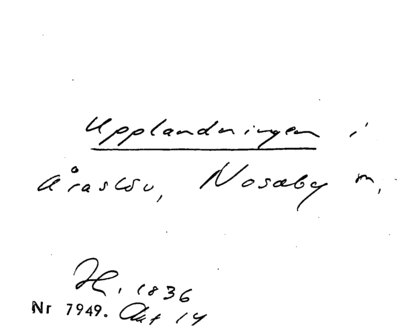 Upplandningen i
Åraslöv, Nosaby m,
H. 1836
Nr 7949. Akt 14